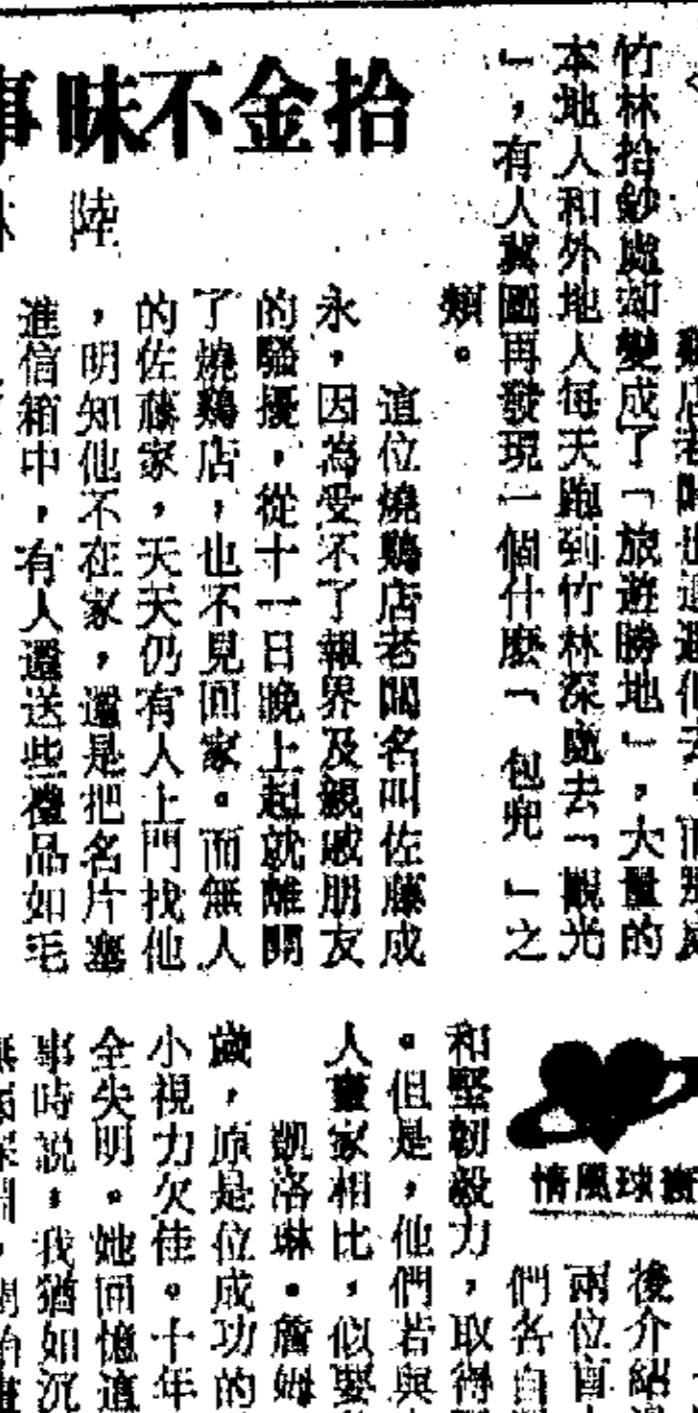 拾金不昧事
陸
竹林拾鈔處却變成了「旅遊勝地」，大量的
本地人和外地人每天跑到竹林深處去「觀光
」，有人冀圖再發現一個什麽「包兜」之
類。
這位燒鷄店老闆名叫佐藤成
永，因為受不了報界及親戚朋友
的騷擾，從十一日晚上起就離開
了燒鷄店，也不見回家。而無人
的佐藤家，天天仍有人上門找他
，明知他不在家，還是把名片塞
進信箱中，有人還送些禮品如毛
寰球風情
後介紹
兩位盲
們各自
和堅韌毅力，取得
。但是，他們若與
人畫家相比，似要
凱洛琳·詹姆
歲，原是位成功的
小視力欠佳。十年
全失明。她回憶這
事時説，我猶如沉